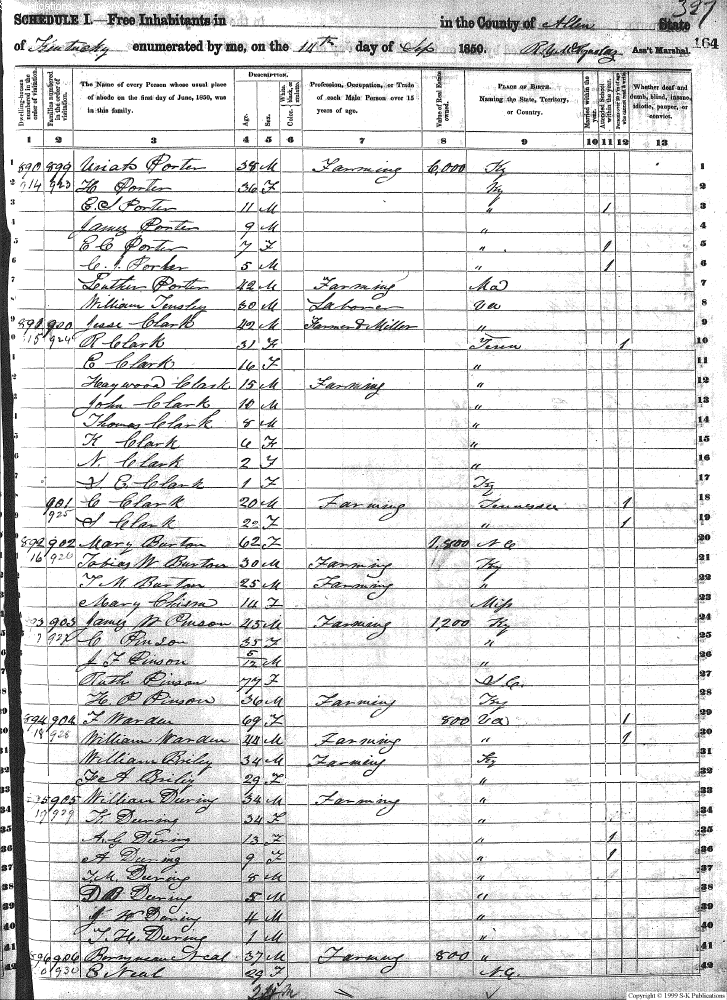 397
SCHEDULE I.—Free Inhabitants in in the County of Allen State
of Kentucky enumerated by me, on the 14th day of Sep 1850. Ass't Marshal. 164
Dwelling-houses numbered in the order of visitation.
Families numbered in the order of visitation.
The Name of every Person whose usual place of abode on the first day of June, 1850, was in this family.
DESCRIPTION.
Age.
Sex.
Color. White, black, or mulatto.
Profession, Occupation, or Trade of each Male Person over 15 years of age.
Value of Real Estate owned.
PLACE OF BIRTH. Naming the State, Territory, or Country.
Married within the year.
Attended School within the year.
Persons over 20 y'rs of age who cannot read & write.
Whether deaf and dumb, blind, insane, idiotic, pauper, or convict.
1 2 3 4 5 6 7 8 9 10 11 12 13
1 899 Uriah Porter 38 M Farming 6,000 Ky 1
2 914 923 H Porter 36 F Ky 2
3 E. S Porter 11 M " 1 3
4 James Porter 9 M " 4
5 E C Porter 7 F " 1 5
6 C. J. Porter 5 M " 1 6
7 Luther Porter 42 M Farming Md 7
8 William Tensley 30 M Laborer Va 8
9 900 Jesse Clark 42 M Farmer & Miller " 9
10 15 924 R Clark 31 F Tenn 1 10
11 E Clark 16 F " 11
12 Haywood Clark 15 M Farming " 12
13 John Clark 10 M " 13
14 Thomas Clark 8 M " 14
15 K Clark 6 F " 15
16 N. Clark 2 F " 16
17 S E Clark 1 F Ky 17
18 901 C Clark 20 M Farming Tennessee 1 18
19 925 S Clark 22 F " 1 19
20 892 902 Mary Burton 62 F 1,800 N C 20
21 16 926 Tobias W Burton 30 M Farming Ky 21
22 T M Burton 25 M Farming " 22
23 Mary Chism 14 F Miss 23
24 903 James W Pinson 45 M Farming 1,200 Ky 24
25 927 C Pinson 35 F " 25
26 J F Pinson 5/12 M " 26
27 Ruth Pinson 77 F S C. 27
28 H. P Pinson 36 M Farming Ky 28
29 894 904 F Warden 69 F 800 Va 1 29
30 18 928 William Warden 44 M Farming " 1 30
31 William Briley 34 M Farming Ky 31
32 A Briley 29 F " 32
33 905 William During 34 M Farming " 33
34 19 929 K During 34 F " 34
35 A. G During 13 F " 1 35
36 A During 9 F " 1 36
37 T. M. During 8 M " 37
38 D B During 5 M " 38
39 J W During 4 M " 39
40 T. H. During 1 M " 40
41 896 906 Berryman Neal 37 M Farming 800 " 41
42 930 E Neal 29 F N C. 42
Copyright © 1999 S-K Publications